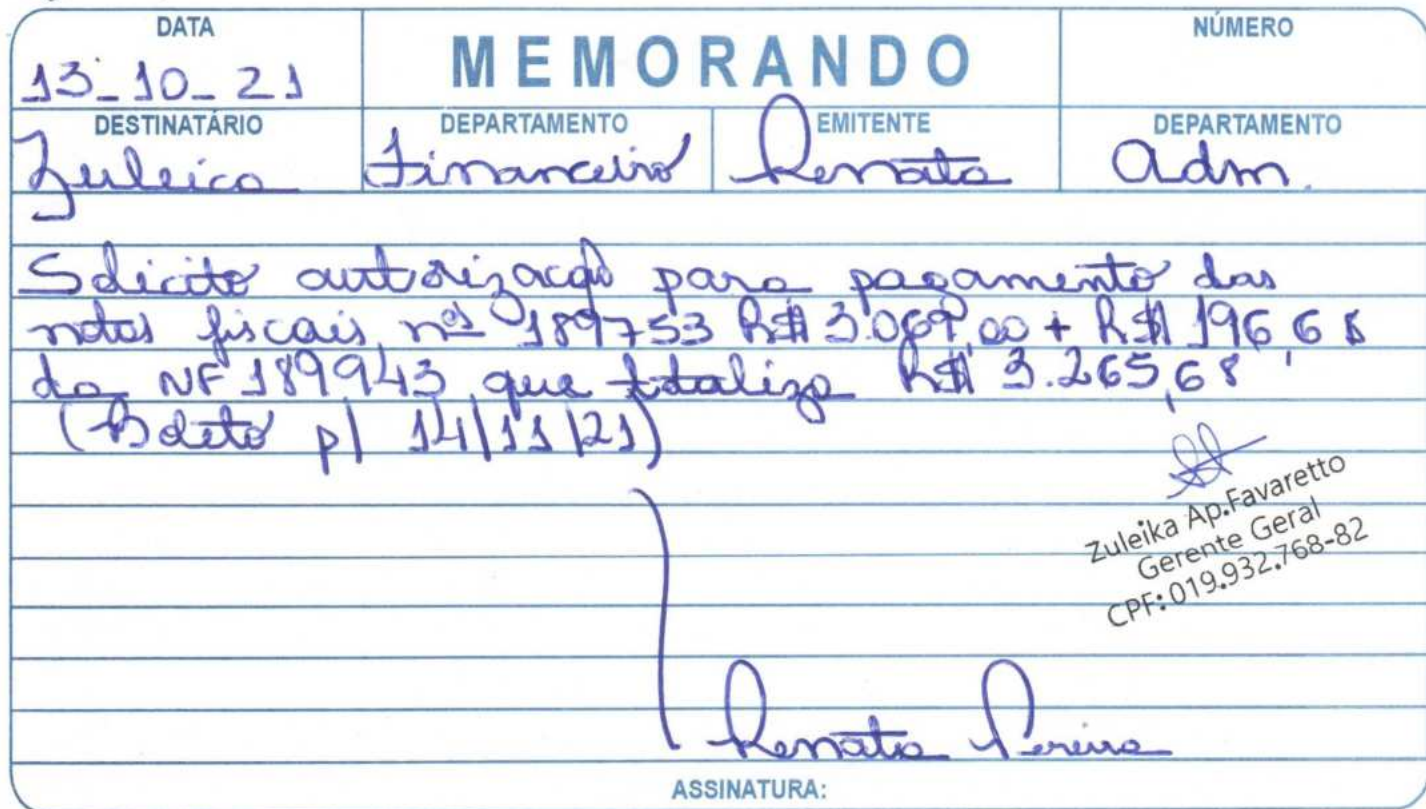 DATA
MEMORANDO
NÚMERO
13_10_21
DESTINATÁRIO
DEPARTAMENTO
EMITENTE
DEPARTAMENTO
Zuleica
Financeiro
Renata
Adm.
Solicito autorização para pagamento das
notas fiscais, nºs 189753 R$ 3.069,00 + R$ 196,68
da NF 189943 que totaliza R$ 3.265,68
(Boleto p/ 14/11/21)
Zuleika Ap.Favaretto
Gerente Geral
CPF: 019.932.768-82
Renata Pereira
ASSINATURA: